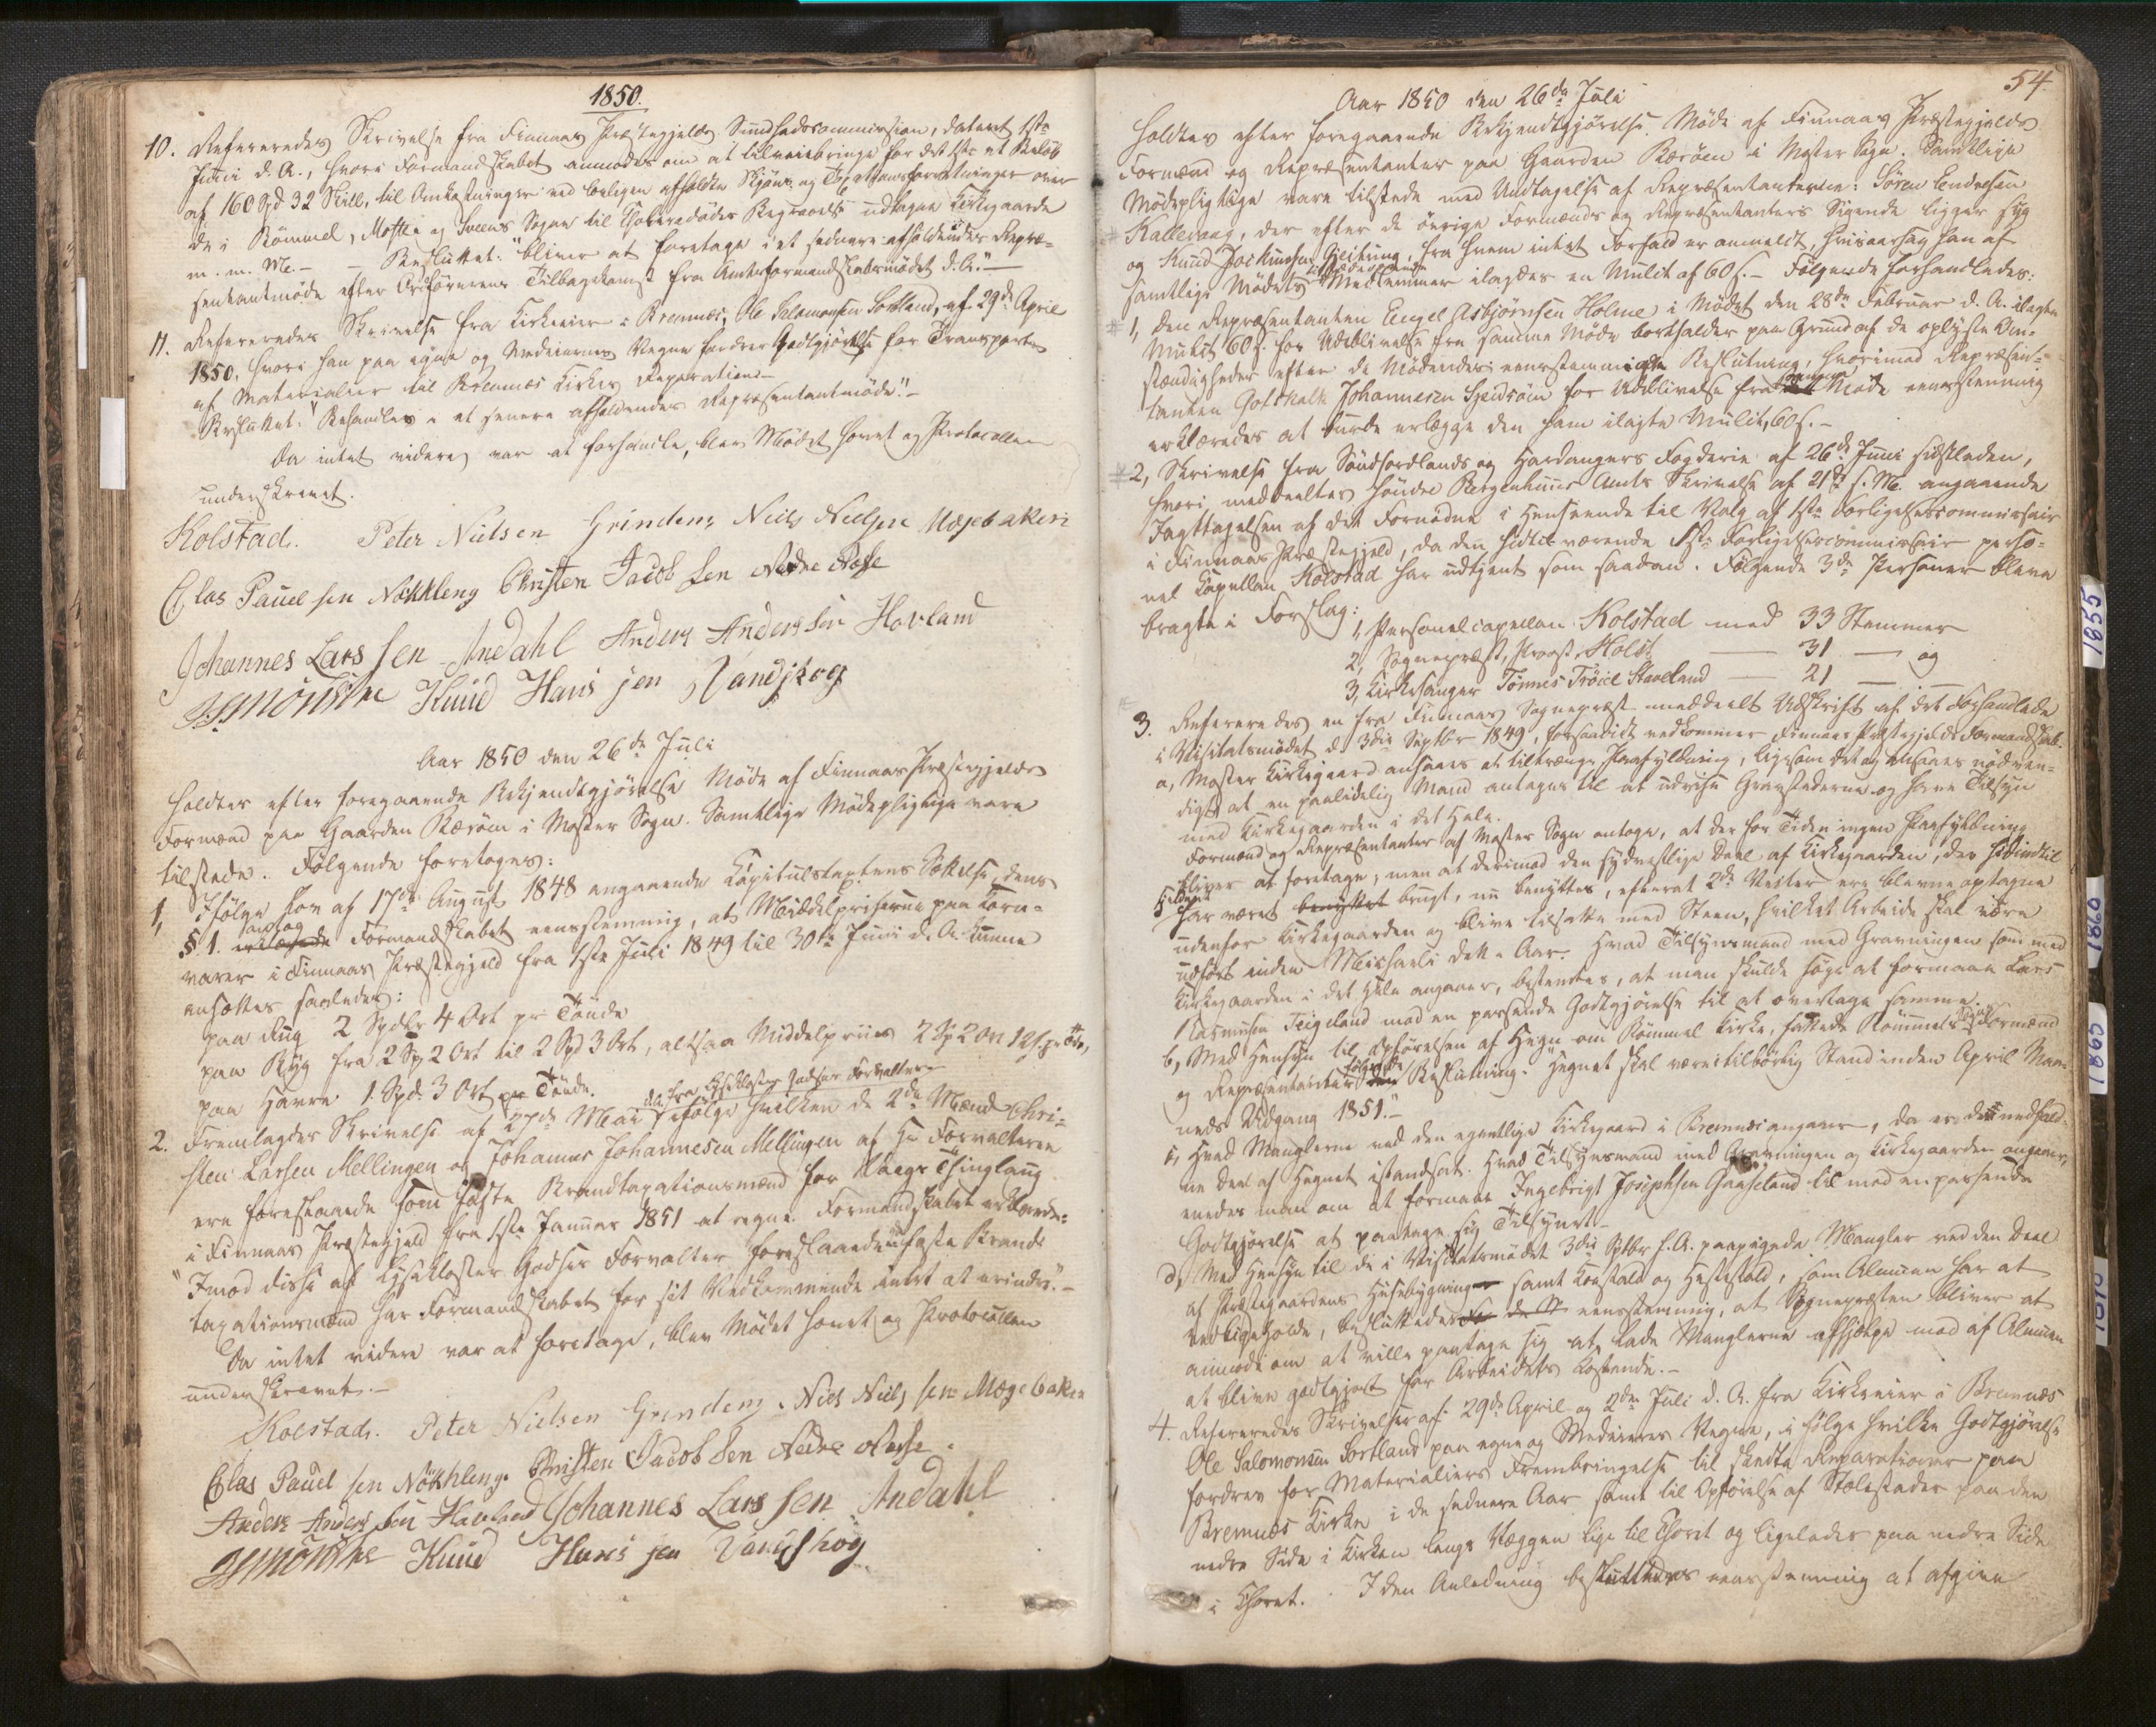 1850.
10. Refereredes Skrivelse fra Finnaas Præstegjelds Sundhedscommission, dateret 1ste
Juni d. A., hvori Formandskabet anmodes om at tilveiebringe for det 1ste et Beløb
af 160 Spd 32 Skill. til Omkostninger ved berligen afholdte Skjøns og Taxationsforretninger over
de i Rømmel, Moster og Sveens Sogne til Choleradødes Begravelse udtagne Kirkegaarde
m. m. M. — — Besluttet: "bliver at foretage i et sednere afholdendes Repræ-
sentantmøde efter Ordførerens Tilbagekomst fra Amtsformandskabsmødet d. A." —
11. Refereredes Skrivelse fra Kirkeeier i Bremnæs, Ole Salomonsen Sortland, af 29de April
1850, hvori han paa egne og Medeiernes Vegne fordrer Godtgjørelse for Transporten
af Materialier til Bremnæs Kirkes Reparation. —
Besluttet: "Behandles i et senere afholdendes Repræsentantmøde." —
Da intet videre var at forhandle, blev Mødet hævet og Protocollen
underskrevet.
Kolstad. Peter Nielsen Grindeny Niels Nielsen Mæjebakein
Clas Pauel sen Nøkkleng Christen Jacob Sen Nedre Næsse
Johannes Lars sen Andahl Anders Anders Sen Hovland
Knud Hans sen Vandskog
Aar 1850 den 26de Juli
holdtes efter foregaaende Bekjendtgjørelse Møde af Finnaas Præstegjelds
Formænd paa Gaarden Bærøen i Moster Sogn. Samtlige Mødepligtige vare
tilstede. Følgende foretoges:
1, Ifølge Lov af 17de August 1848 angaaende Capitulstaxtens Sættelse, dens
§. 1. antog Formandskabet eensstemmig, at Middelpriserne paa Korn-
varer i Finnaas Præstegjeld fra 1ste Juli 1849 til 30te Juni d. A. kunne
ansættes saaledes:
paa Rug 2 Spdlr 4 Ort pr Tønde
paa Byg fra 2 Sp 2 Ort til 2 Spd 3 Ort, altsaa Middelpriis 2 Sp 2 Ort 12 s. pr Tde,
paa Havre 1. Spd. 3 Ort pr Tønde.
d. A. fra Lysekloster Godses Forvalter
2. Fremlagdes Skrivelse af 27de Mai ifølge hvilken de 2de Mænd Chri-
sten Larsen Mellingen og Johannes Johannesen Mellingen af Hr Forvalteren
ere foreslaaede som faste Brandtaxationsmænd for Waags Thinglaug
i Finnaas Præstegjeld fra 1ste Januar 1851 at regne. Formandskabet erklærede:
"Imod disse af Lysekloster Godses Forvalter foreslaaede faste Brand-
taxationsmænd har Formandskabet for sit Vedkommende intet at erindre." —
Da intet videre var at foretage, blev Mødet hævet og Protocollen
underskrevet. —
Kolstad. Peter Nielsen Grindeny. Niels Niels sen Mæge baken
Clas Pauel sen Nøkkleng. Christen Jacob Sen Nedre Næsse.
Anders Anders Sen Havland Johannes Lars sen Andahl
Knud Hans sen Vandskog
54.
Aar 1850 den 26de Juli
holdtes efter foregaaende Bekjendtgjørelse Møde af Finnaas Præstegjelds
Formænd og Repræsentanter paa Gaarden Bærøen i Moster Sogn. Samtlige
Mødepligtige vare tilstede med Undtagelse af Repræsentanterne: Søren Endresen
Kallevaag, der efter de øvrige Formænds og Repræsentanters Sigende ligger syg
og Knud Jockumsen Geitung, fra hvem intet Forfald er anmeldt, hvisaarsag han af
samtlige Mødets Medlemmer ilagdes en Mulct af 60 s. — Følgende forhandledes:
1, Den Repræsentanten Engel Asbjørnsen Holme i Mødet den 28de Februar d. A. ilagte
Mulct 60 s. for Udeblivelse fra samme Møde bortfalder paa Grund af de oplyste Om-
stændigheder efter de Mødendes eensstemmige Beslutning, hvorimod Repræsen-
tanten Gotskalk Johannesen Speidsøin for Udeblivelse fra samme Møde eensstemmig
erklæredes at burde erlægge den ham ilagte Mulct, 60 s. —
2, Skrivelse fra Søndhordlands og Hardangers Fogderie af 26de Juni sidstleden,
hvori meddeeltes søndre Bergenhuus Amts Skrivelse af 21de s. M. angaaende
Iagttagelsen af det Fornødne i Henseende til Valg af 1ste Forligelsescommissair
i Finnaas Præstegjeld, da den hidtil værende 1ste Forligelsescommissair perso-
nel Capellan Kolstad har udtjent som saadan. Følgende 3de Personer bleve
bragte i Forslag:
1, Personelcapellan Kolstad med 33 Stemmer
2, Sognepræst, Provst, Holst — 31 — og
3, Kirkesanger Tønnes Trøiel Stavland — 21 —
3. Refereredes en fra Finnaas Sognepræst meddeelt Udskrift af det Forhandlede
i Visitatsmødet d. 3die Septbr 1849, forsaavidt vedkommer Finnaas Præstegjelds Formandskab.
a, Moster Kirkegaard ansaaes at tiltrænge Paafyldning, ligesom det og ansaaes nødven-
digt at en paalidelig Mand antages til at udvise Gravstederne og have Tilsyn
med Kirkegaarden i det Hele.
Formænd og Repræsentanter af Moster Sogn antoge, at der for Tiden ingen Paafyldning
bliver at foretage, men at derimod den sydvestlige Deel af Kirkegaarden, der hidindtil
sildent har været benyttet brugt, nu benyttes, efterat 2de Rister ere blevne optagne
udenfor Kirkegaarden og blive tilsatte med Steen, hvilket Arbeide skal være
udført inden Michaeli dette Aar. Hvad Tilsynsmand med Gravningen som med
Kirkegaarden i det Hele angaaer, bestemtes, at man skulde søge at formaae Lars
Rasmusen Teigeland mod en passende Godtgjørelse til at overtage samme.
b, Med Hensyn til Opførelsen af Hegn om Rømmel Kirke, fattede Rømmels Sogns Formænd
og Repræsentanter følgende Beslutning: "Hegnet skal være i tilbørlig Stand inden April Maa-
neds Udgang 1851." —
c, Hvad Manglerne ved den egentlige Kirkegaard i Bremnæs angaaer, da er den nedfald-
ne Deel af Hegnet istandsat. Hvad Tilsynsmand med Gravningen og Kirkegaarden angaaer,
enedes man om at formaae Ingebrigt Josephsen Gaaseland til mod en passende
Godtgjørelse at paatage sig Tilsynet. —
d, Med Hensyn til de i Visitatsmødet 3die Sptbr f. A. paapegede Mangler ved den Deel
af Præstegaardens Huusebygning samt Kostald og Hestestald, som Almuen har at
vedligeholde, besluttedes eensstemmig, at Sognepræsten bliver at
anmode om at ville paatage sig at lade Manglerne afhjælpe mod af Almuen
at blive godtgjort for Arbeidets Kostende. —
4. Refereredes Skrivelser af 29de April og 2den Juli d. A. fra Kirkeeier i Bremnæs
Ole Salomonsen Sortland paa egne og Medeieres Vegne, i følge hvilke Godtgjørelse
fordres for Materialiers Frembringelse til skeedte Reparationer paa
Bremnæs Kirke i de sednere Aar samt til Opførelse af Stolestader paa den
nedre Side i Kirken langs Væggen lige til Choret og ligeledes paa nedre Side
i Choret. I den Anledning besluttedes eensstemmig at afgive
1855
1860
1865
1870